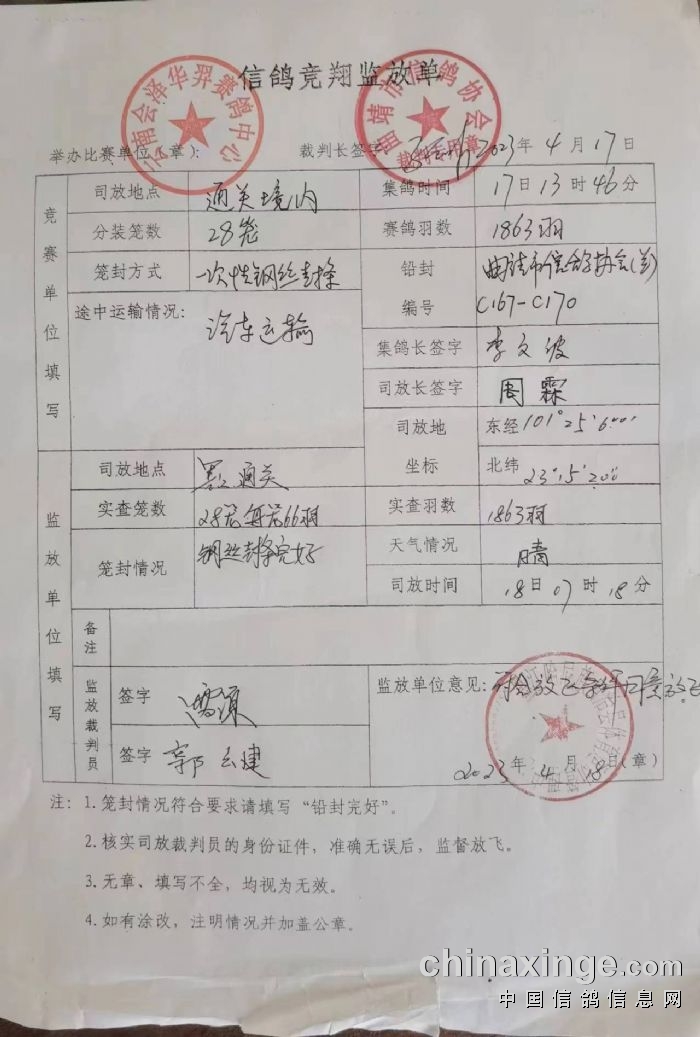 信鸽竞翔监放单
云南会泽华羿赛鸽中心
曲靖市信鸽协会
裁判专用章
举办比赛单位(章): 裁判长签字: 2023年4月17日
竞赛单位填写
司放地点 通关境内 集鸽时间 17日13时46分
分装笼数 28笼 赛鸽羽数 1863羽
笼封方式 一次性钢丝封条 铅封 曲靖市信鸽协会(兰)
编号 C167-C170
途中运输情况: 汽车运输
集鸽长签字 李文波
司放长签字 周霖
司放地 东经101°25′6
坐标 北纬23°15′200
监放单位填写
司放地点 墨江通关
实查笼数 28笼每笼66羽 实查羽数 1863羽
笼封情况 钢丝封条完好 天气情况 晴
司放时间 18日07时18分
备注
监放裁判员
签字
签字 郭云建
监放单位意见: 符合放飞条件同意放飞
2023年4月18日(章)
注: 1.笼封情况符合要求请填写“铅封完好”。
2.核实司放裁判员的身份证件,准确无误后,监督放飞。
3.无章、填写不全,均视为无效。
4.如有涂改,注明情况并加盖公章。
chinaxinge.com
中国信鸽信息网